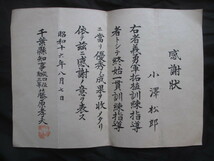 感謝狀
小澤松郎
右者義勇軍拓植訓練指導
者トシテ終始一貫訓練指導
ニ當リ優秀ノ成果ヲ收メタリ
依テ茲ニ感謝ノ意ヲ表ス
昭和十六年八月七日
千葉縣知事 藤原孝夫